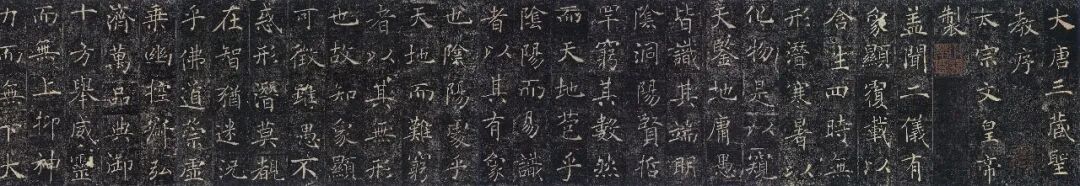 大唐三藏聖
教序
太宗文皇帝
製
盖聞二儀有
象顯覆載以
含生四時無
形潛寒暑以
化物是以窺
天鑒地庸愚
皆識其端明
陰洞陽賢哲
罕窮其數然
而天地苞乎
陰陽而易識
者以其有象
也陰陽處乎
天地而難窮
者以其無形
也故知象顯
可徵雖愚不
惑形潛莫覩
在智猶迷況
乎佛道崇虛
乘幽控寂弘
濟萬品典御
十方舉威靈
而無上抑神
力而無下大